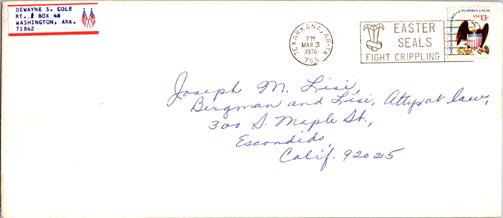 DEWAYNE S. COLE
RT. 2 BOX 48
WASHINGTON, ARK.
71862
TEXARKANA, AR-TX
PM
MAR 3
1976
755
EASTER
SEALS
FIGHT CRIPPLING
US 13c
Joseph M. Lisi,
Bergman and Lisi, Attys at law,
300 S. Maple St.,
Escondido,
Calif. 92025